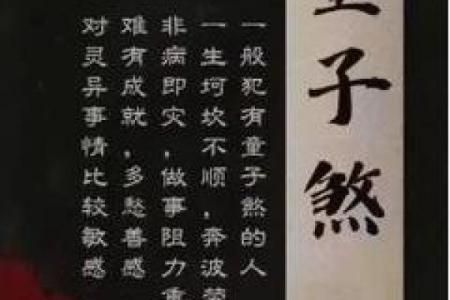 童子煞
一般犯有童子煞的人
一生坷坎不顺，奔波劳
非病即灾，做事阻力重
难有成就，多愁善感
对灵异事情比较敏感